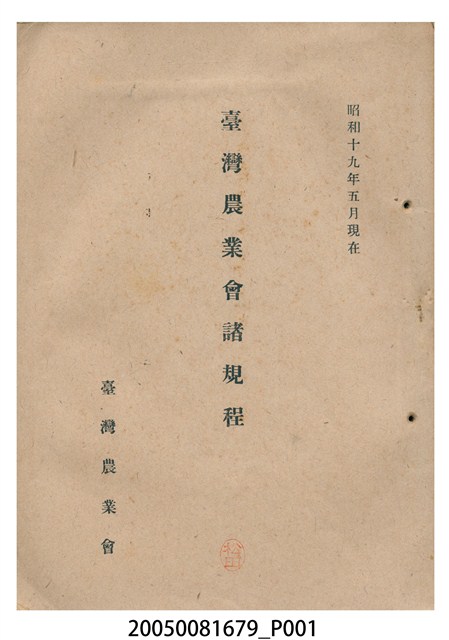 昭和十九年五月現在
臺灣農業會諸規程
臺灣農業會
20050081679_P001